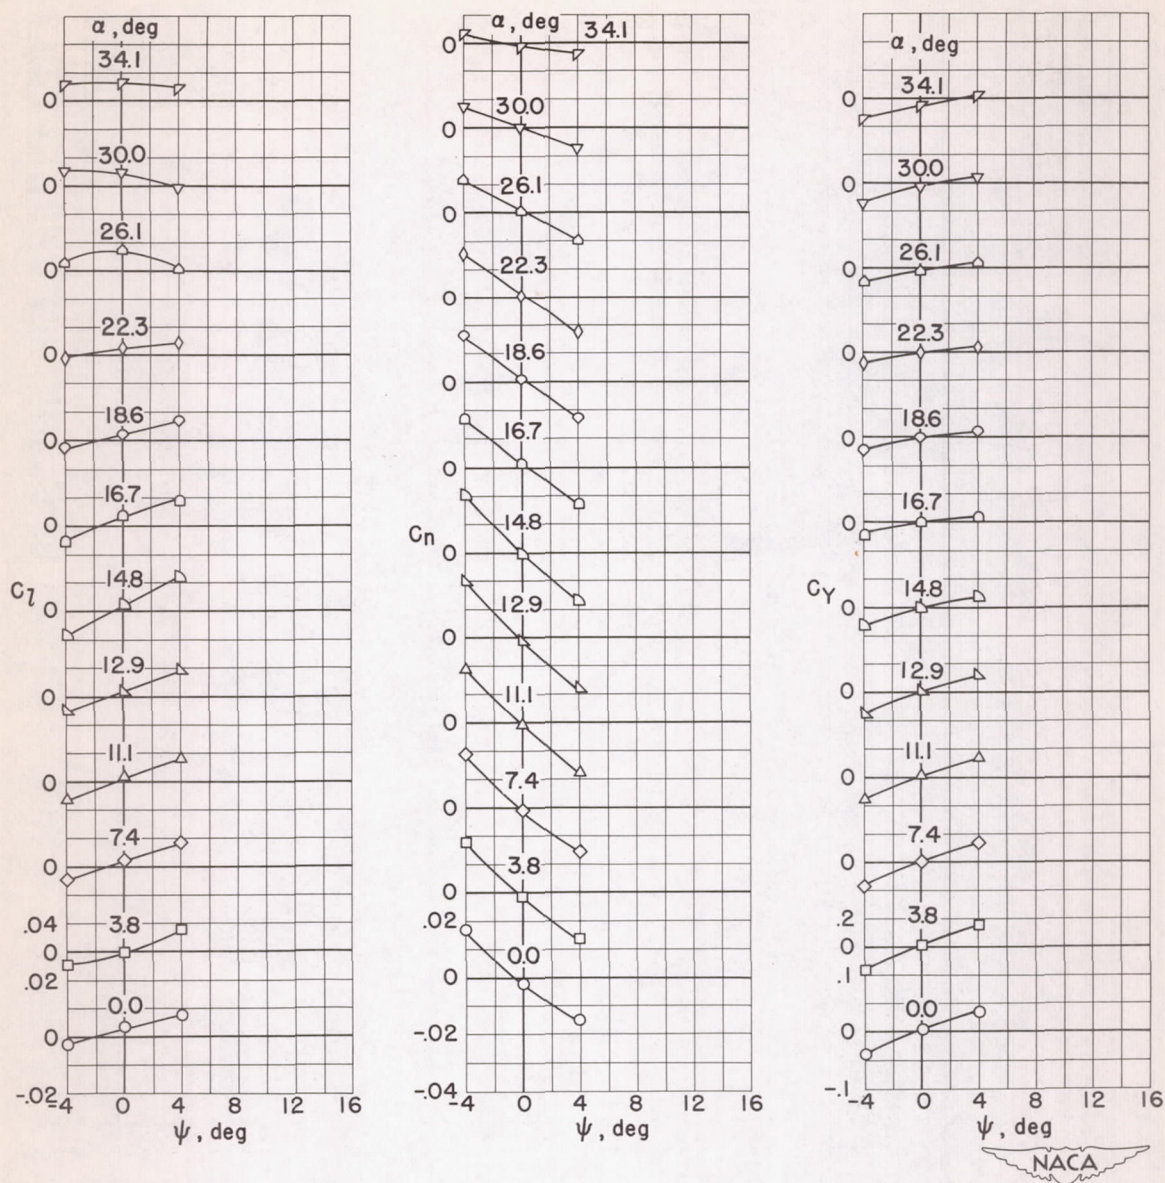 α, deg
34.1
0
30.0
0
26.1
0
22.3
0
18.6
0
16.7
0
14.8
C_l 0
12.9
0
11.1
0
7.4
0
.04 3.8
0
.02
0.0
0
-.02
-4 0 4 8 12 16
ψ, deg
α, deg
34.1
0
30.0
0
26.1
0
22.3
0
18.6
0
16.7
0
14.8
C_n 0
12.9
0
11.1
0
7.4
0
3.8
0
.02
0.0
0
-.02
-.04
-4 0 4 8 12 16
ψ, deg
α, deg
34.1
0
30.0
0
26.1
0
22.3
0
18.6
0
16.7
0
14.8
C_Y 0
12.9
0
11.1
0
7.4
0
.2 3.8
0
.1
0.0
0
-.1
-4 0 4 8 12 16
ψ, deg
NACA